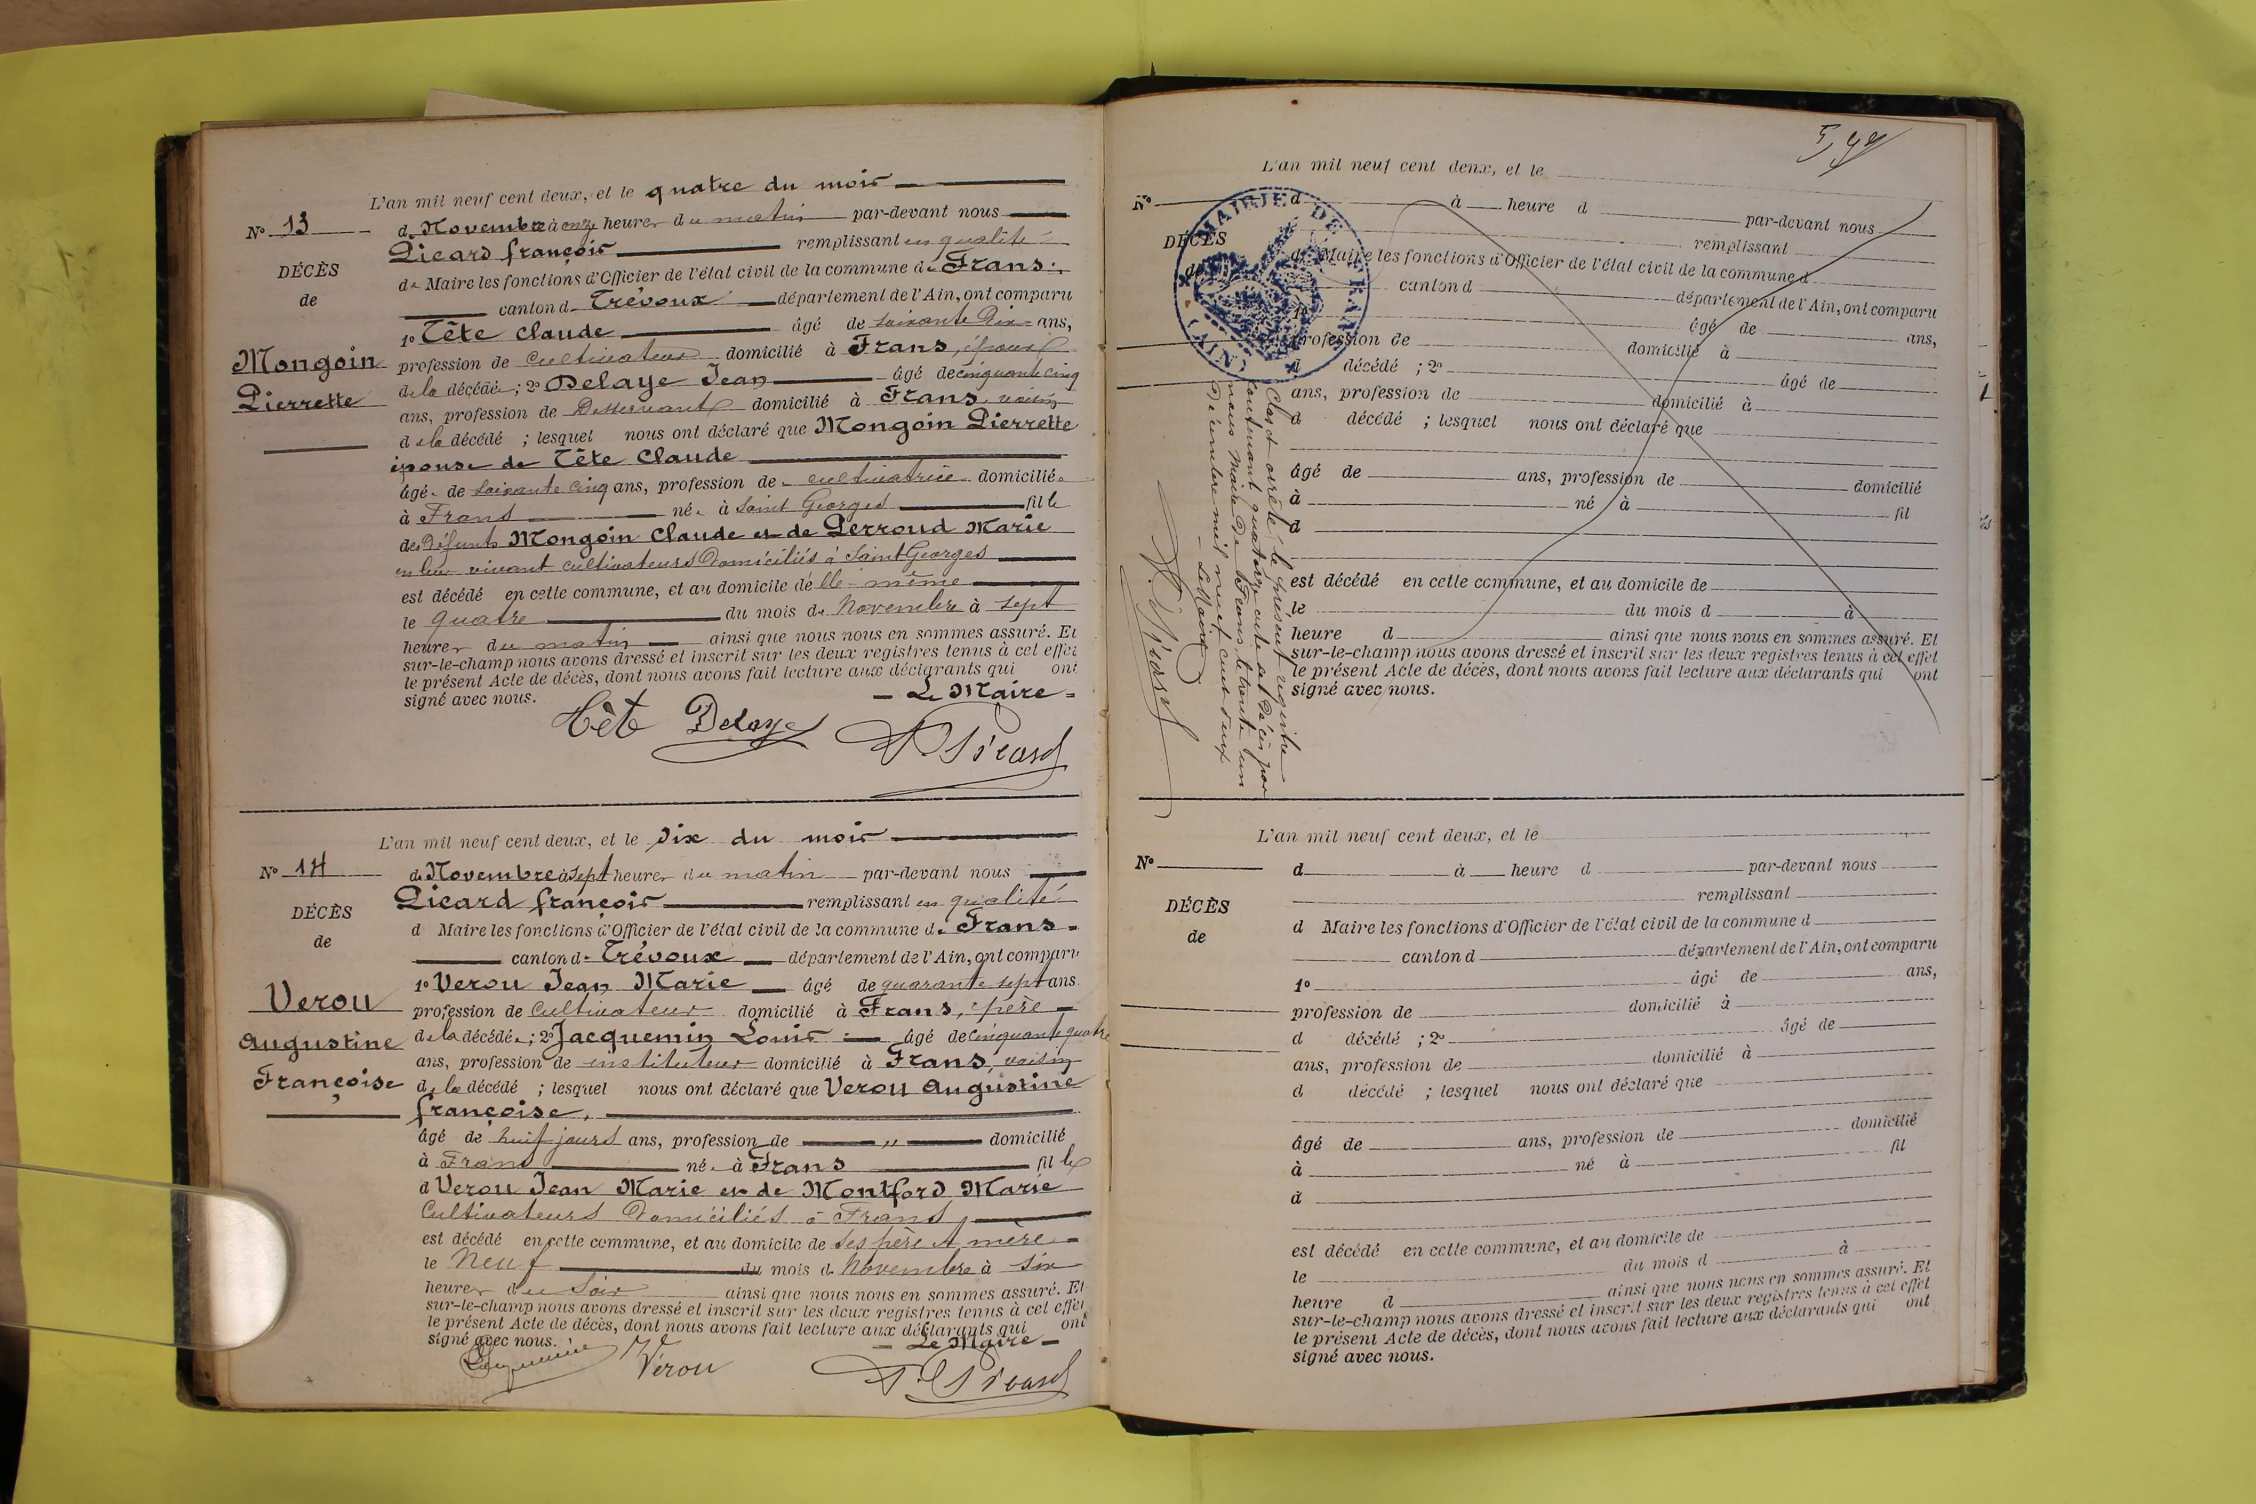 L'an mil neuf cent deux, et le quatre du mois
No 13
de Novembre à onze heures du matin par-devant nous
Picard françois remplissant en qualité
DÉCÈS
de Maire les fonctions d'Officier de l'état civil de la commune de Frans
de
canton de Trévoux département de l'Ain, ont comparu
1o Tête Claude âgé de soixante Dix ans,
Mongoin
profession de Cultivateur domicilié à Frans, époux
Pierrette
de la décédé ; 2o Delaye Jean âgé de cinquante cinq
ans, profession de Desservant domicilié à Frans voisin
de la décédé ; lesquel nous ont déclaré que Mongoin Pierrette
épouse de Tête Claude
âgée de soixante cinq ans, profession de cultivatrice domiciliée
à Frans née à Saint Georges fille
des Défunts Mongoin Claude et de Perroud Marie
en leur vivant cultivateurs Domiciliés à Saint Georges
est décédé en cette commune, et au domicile d'elle-même
le quatre du mois de Novembre à sept
heures du matin ainsi que nous nous en sommes assuré. Et
sur-le-champ nous avons dressé et inscrit sur les deux registres tenus à cet effet
le présent Acte de décès, dont nous avons fait lecture aux déclarants qui ont
signé avec nous. Le Maire
Tête Delaye F. Picard
L'an mil neuf cent deux, et le Dix du mois
No 14
de Novembre à sept heures du matin par-devant nous
Picard françois remplissant en qualité
DÉCÈS
d Maire les fonctions d'Officier de l'état civil de la commune de Frans
de
canton de Trévoux département de l'Ain, ont comparu
1o Verou Jean Marie âgé de quarante sept ans
Verou
profession de Cultivateur domicilié à Frans, père
Augustine
de la décédée ; 2o Jacquemin Louis âgé de cinquante quatre
ans, profession de instituteur domicilié à Frans, voisin
Françoise
de la décédé ; lesquel nous ont déclaré que Verou Augustine
françoise,
âgé de huit jours ans, profession de " domicilié
à Frans née à Frans fille
d Verou Jean Marie et de Montford Marie
Cultivateurs Domiciliés à Frans
est décédé en cette commune, et au domicile de ses père et mère
le Neuf du mois de Novembre à six
heures du Soir ainsi que nous nous en sommes assuré. Et
sur-le-champ nous avons dressé et inscrit sur les deux registres tenus à cet effet
le présent Acte de décès, dont nous avons fait lecture aux déclarants qui ont
signé avec nous. Le Maire
Jacquemin Verou F. Picard
L'an mil neuf cent deux, et le
No
d à heure d par-devant nous
remplissant
DÉCÈS
d Maire les fonctions d'Officier de l'état civil de la commune d
de
canton d département de l'Ain, ont comparu
1o âgé de ans,
profession de domicilié à
d décédé ; 2o âgé de
ans, profession de domicilié à
d décédé ; lesquel nous ont déclaré que
âgé de ans, profession de domicilié
à né à fil
d
est décédé en cette commune, et au domicile de
le du mois d à
heure d ainsi que nous nous en sommes assuré. Et
sur-le-champ nous avons dressé et inscrit sur les deux registres tenus à cet effet
le présent Acte de décès, dont nous avons fait lecture aux déclarants qui ont
signé avec nous.
MAIRIE DE FRANS
(AIN)
Clos et arrêté le présent registre
contenant quatorze actes de Décès par
nous Maire de Frans le trente un
Décembre mil neuf cent deux
Le Maire
F. Picard
L'an mil neuf cent deux, et le
No
d à heure d par-devant nous
remplissant
DÉCÈS
d Maire les fonctions d'Officier de l'état civil de la commune d
de
canton d département de l'Ain, ont comparu
1o âgé de ans,
profession de domicilié à
d décédé ; 2o âgé de
ans, profession de domicilié à
d décédé ; lesquel nous ont déclaré que
âgé de ans, profession de domicilié
à né à fil
d
est décédé en cette commune, et au domicile de
le du mois d à
heure d ainsi que nous nous en sommes assuré. Et
sur-le-champ nous avons dressé et inscrit sur les deux registres tenus à cet effet
le présent Acte de décès, dont nous avons fait lecture aux déclarants qui ont
signé avec nous.